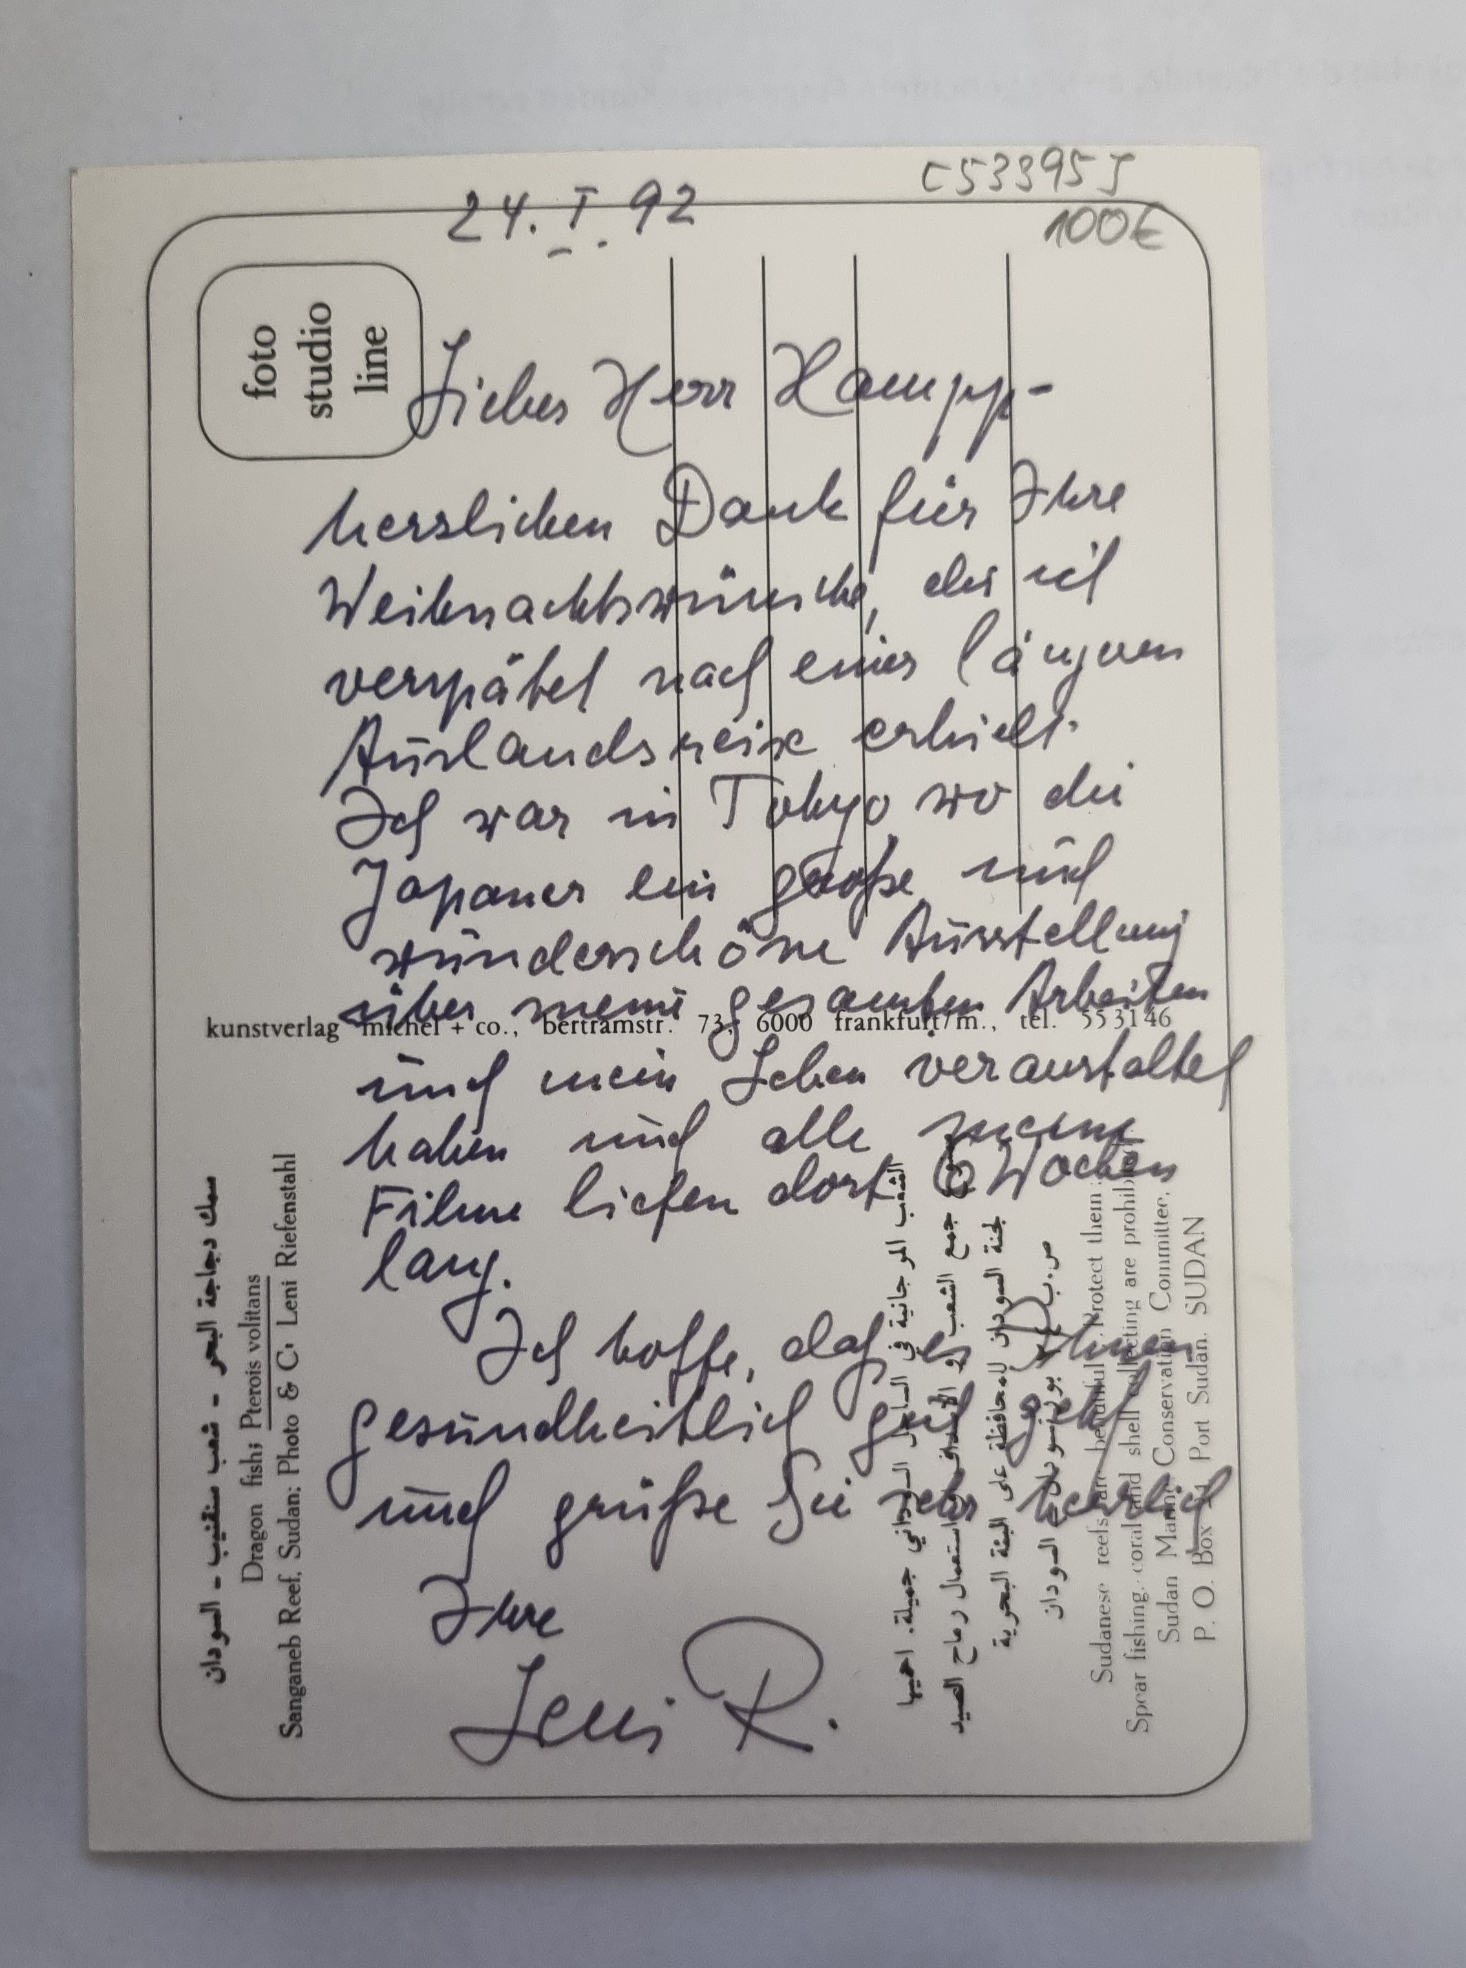 24. I. 92
C53395J
100€
foto
studio
line
Lieber Herr Hampp-
herzlichen Dank für Ihre
Weihnachtswünsche, die ich
verspätet nach einer längeren
Auslandsreise erhielt.
Ich war in Tokyo wo die
Japaner ein große und
wunderschöne Ausstellung
über meine gesamten Arbeiten
kunstverlag michel + co., bertramstr. 73, 6000 frankfurt/m., tel. 553146
und mein Leben veranstaltet
haben und alle meine
Filme liefen dort 6 Wochen
lang.
Ich hoffe, daß es Ihnen
gesundheitlich gut geht
und grüße Sie sehr herzlich
Ihre
Leni R.
سمك دجاجة البحر - شعب سنقنيب - السودان
Dragon fish: Pterois volitans
Sanganeb Reef, Sudan: Photo & C: Leni Riefenstahl
الشعب المرجانية في الساحل السوداني جميلة. احميها
جمع الشعب و استعمال رماح الصيد
لجنة السودان للمحافظة على البيئة البحرية
ص.ب بورتسودان السودان
Sudanese reefs are beautiful. Protect them:
Spear fishing, coral and shell collecting are prohibited
Sudan Marine Conservation Committee,
P. O. Box Port Sudan. SUDAN